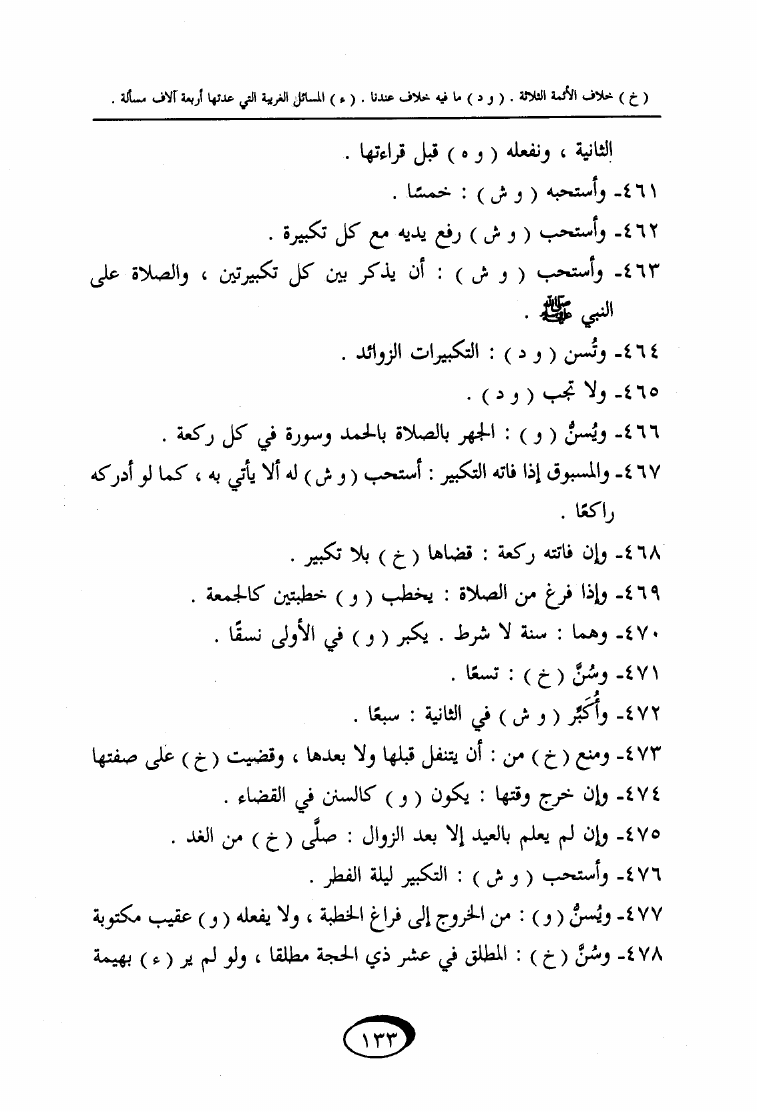 ( خ ) خلاف الأئمة الثلاثة . ( و د ) ما فيه خلاف عندنا . ( ء ) المسائل الغريبة التي عدتها أربعة آلاف مسألة .
الثانية ، ونفعله ( و ه ) قبل قراءتها .
٤٦١- وأستحبه ( و ش ) : خمسًا .
٤٦٢- وأستحب ( و ش ) رفع يديه مع كل تكبيرة .
٤٦٣- وأستحب ( و ش ) : أن يذكر بين كل تكبيرتين ، والصلاة على
النبي ﷺ .
٤٦٤- وتُسن ( و د ) : التكبيرات الزوائد .
٤٦٥- ولا تجب ( و د ) .
٤٦٦- ويُسنُّ ( و ) : الجهر بالصلاة بالحمد وسورة في كل ركعة .
٤٦٧- والمسبوق إذا فاته التكبير : أستحب ( و ش ) له ألا يأتي به ، كما لو أدركه
راكعًا .
٤٦٨- وإن فاتته ركعة : قضاها ( خ ) بلا تكبير .
٤٦٩- وإذا فرغ من الصلاة : يخطب ( و ) خطبتين كالجمعة .
٤٧٠- وهما : سنة لا شرط . يكبر ( و ) في الأولى نسقًا .
٤٧١- وسُنَّ ( خ ) : تسعًا .
٤٧٢- وأُكَبِّر ( و ش ) في الثانية : سبعًا .
٤٧٣- ومنع ( خ ) من : أن يتنفل قبلها ولا بعدها ، وقضيت ( خ ) على صفتها
٤٧٤- وإن خرج وقتها : يكون ( و ) كالسنن في القضاء .
٤٧٥- وإن لم يعلم بالعيد إلا بعد الزوال : صلَّى ( خ ) من الغد .
٤٧٦- وأستحب ( و ش ) : التكبير ليلة الفطر .
٤٧٧- ويُسنُّ ( و ) : من الخروج إلى فراغ الخطبة ، ولا يفعله ( و ) عقيب مكتوبة
٤٧٨- وسُنَّ ( خ ) : المطلق في عشر ذي الحجة مطلقا ، ولو لم ير ( ء ) بهيمة
١٣٣